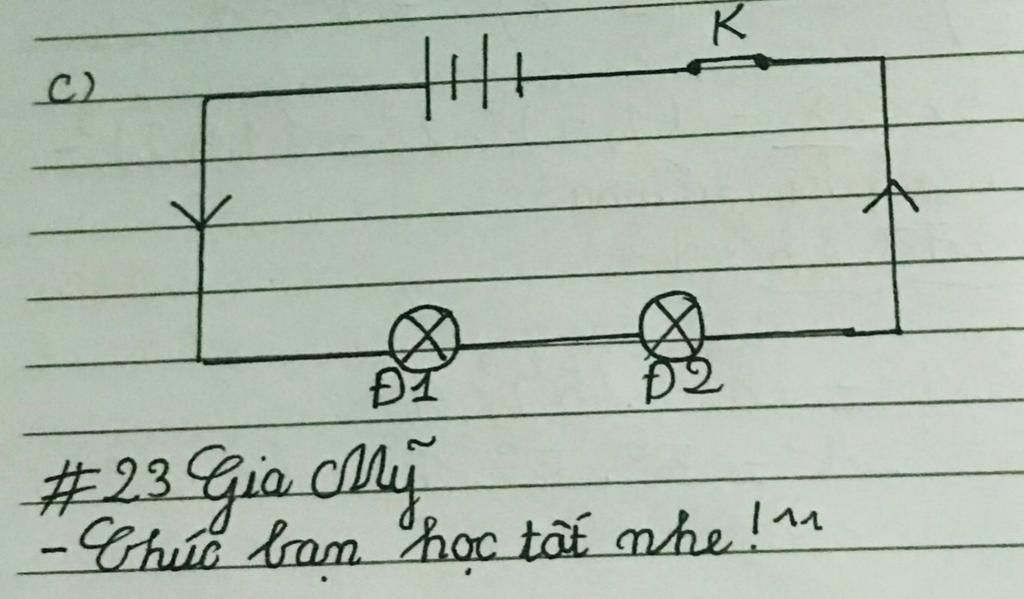 K
C)
Đ1 Đ2
#23 Gia Mỹ
- Chúc bạn học tốt nhe! ^^